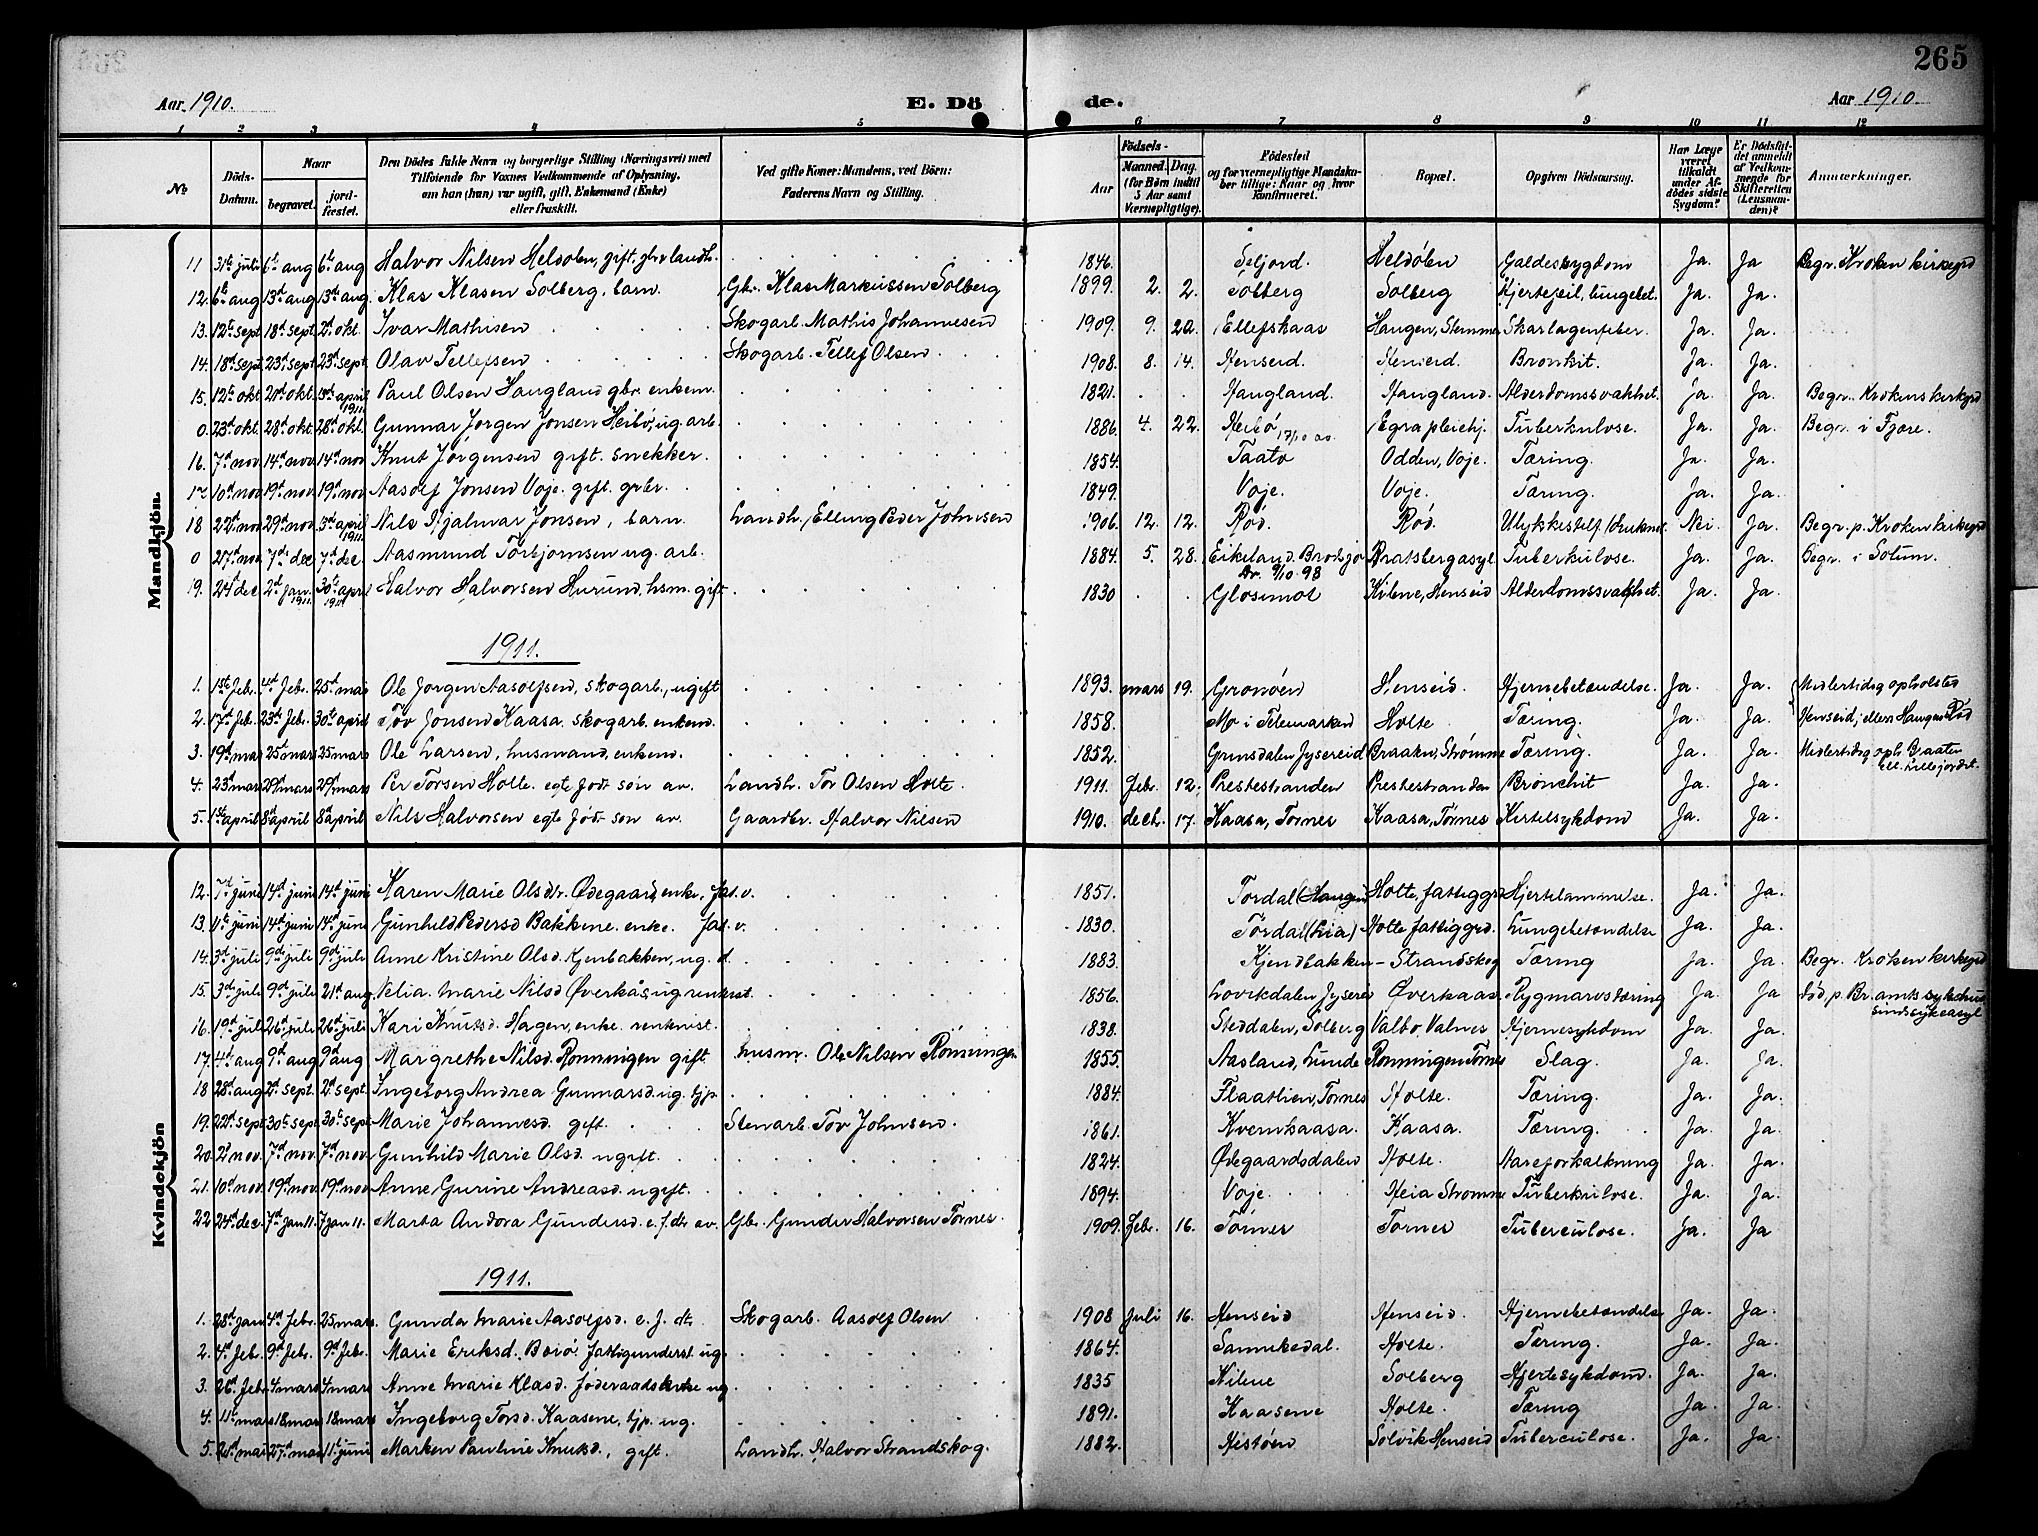 265
Aar 1910. E. Dö de. Aar 1910
1 2 3 4 5 6 7 8 9 10 11 12
No Döds-Datum. Naar begravet. jordfæstet. Den Dödes fulde Navn og borgerlige Stilling (Næringsvei) med Tilföiende for Voxnes Vedkommende af Oplysning, om han (hun) var ugift, gift, Enkemand (Enke) eller fraskilt. Ved gifte Koner: Mandens, ved Börn: Faderens Navn og Stilling. Aar Födsels- Maaned. Dag. (for Börn indtil 5 Aar samt Værnepligtige). Födested og for værnepligtige Mandskaber tillige: Naar og hvor konfirmeret. Bopæl. Opgiven Dödsaarsag. Har Læge været tilkaldt under Afdödes sidste Sygdom? Er Dödsfaldet anmeldt af Vedkommende for Skifteretten (Lensmanden)? Anmærkninger.
Mandkjön
11 31te juli 6te aug 6te aug Halvor Nilsen Heldølen, gift, gbr landh. 1846. Seljord. Heldølen Galdesygdom Ja. Ja Begr. Kroken kirkegrd
12. 6te aug 13d aug 13de aug. Klas Klasen Solberg, barn. Gbr. Klas Markussen Solberg 1899. 2. 2. Solberg Solberg Hjertefeil, lungebet. Ja. Ja.
13. 12te sept 18d sept 2d okt. Ivar Mathisen Skogarb. Mathis Johannesen 1909. 9. 20. Ellefskaas Haugen, Stemmen Skarlagensfeber. Ja. Ja.
14. 18d sept 23d sept 23d sept. Olav Tellefsen Skogarb. Tellef Olsen 1908. 8. 14. Henseid. Henseid. Bronkit. Ja. Ja.
15. 12te okt. 21d okt. 3d april 1911. Paul Olsen Haugland gbr. enkem. 1821. Haugland. Haugland. Alderdomssvakhet. Ja. Ja. Begr. Krokens kirkegrd
0. 23d okt. 28d okt. 28d okt. Gunnar Jørgen Jonsen Heibø, ug. arb. 1886. 4. 22. Heibø, Egra pleiehj. Tuberkulose. Ja. Ja. Begr. i Fjære.
16. 7d nov. 14d nov. 14d nov Knut Jørgensen gift. snekker. 1854. Taatø Odden, Voje. Tæring. Ja. Ja.
17 10d nov 19d nov. 19d nov. Aasolf Jonsen Voje. gift. grbr. 1849. Voje. Voje. Tæring. Ja. Ja.
18 22d nov 29d nov. 3d april 1911. Nils Hjalmar Jonsen, barn. Landh. Elling Peder Johnsen 1906. 12. 12. Rød. Rød. Ulykkestilf. (druknet) Nei. Ja. Begr. p. Kroken kirkegrd
0 27d nov. 7de dec 7d dec. Aasmund Torbjørnsen ug. arb. 1884. 5. 28. Eikeland, Brodsjø Bratsbergasyl Tuberkulose. Ja. Ja. Begr. i Solum.
19. 24d dec. 2d jan. 1911. 30te april 1911 Halvor Halvorsen Hurund, hsm. gift 1830 Glosimot Kilene, Henseid Alderdomssvakhet. Ja. Ja.
1911.
1. 1ste febr. 4d febr. 25d mars Ole Jørgen Aasolfsen, skogarb., ugift 1893. mars 19. Grønøen Henseid. Hjernebetændelse. Ja. Ja. Midlertidig opholdsted
2. 17d febr. 23de febr. 30te april Tov Jonsen Kaasa, skogarb. enkem. 1858. Mo i Telemarken Holte Tæring. Ja. Ja. Henseid, ellers Haugen Rød
3. 19d mar 25d mars 25 mars Ole Larsen, husmand, enkem. 1852. Grunsdalen Jysereid Braaten, Strømme Tæring. Ja. Ja. Midlertidig oph. Braaten ell. Lillejordet.
4. 23d mars 29d mars 29d mars Per Torsen Holte. egte født søn av. Landh. Tor Olsen Holte. 1911. febr. 12. Prestestranden Prestestranden Bronchit Ja. Ja.
5. 1ste april 8d april 8d april Nils Halvorsen egte født søn av. Gaardbr. Halvor Nilsen 1910. decbr. 17. Kaasa, Tørnes Kaasa, Tørnes Kirtelsykdom Ja. Ja.
Kvindekjön
12. 7d juni 14d juni 14d juni Karen Marie Olsdtr. Ødegaard, enke, fat. v. 1851. Tørdal (Haugen) Holte, fattiggrd Hjertelammelse. Ja. Ja.
13. 11te juni 14d juni 14d juni Gunhild Pedersd Bakkene. enke. fat. v. 1830. Tørdal (Lia) Holte fattiggrd. Lungebetændelse Ja. Ja.
14. 3d juli 9de juli 9d juli Anne Kristine Olsd. Kjenbakken, ug. d. 1883. Kjendbakken - Strandskog Tæring Ja. Ja. Begr. Kroken kirkegrd
15. 3d juli 9d juli 21d aug. Velia Marie Nilsd Øverkås ug underst. 1856. Lovikdalen Jysereid Øverkaas. Rygmarvstæring Ja. Ja død p. Br. amts sykehus sindssykeasyl
16. 19d juli 26d juli 26d juli Kari Knutsd. Hagen, enke. rentenist. 1838. Steddalen, Solberg Valbø, Valnes Hjernesykdom Ja. Ja.
17. 4de aug 9d aug 9d aug Margrethe Nilsd. Rønningen gift. husm. Ole Nilsen Rønningen 1855. Aasland, Lunde Rønningen Tørnes Slag. Ja. Ja.
18 28d aug 2d sept. 2d sept. Ingeborg Andrea Gunnarsd. ug. tjp. 1884. Flaatlien, Tørnes Holte. Tæring. Ja. Ja.
19. 22d sept 30te sept 30te sept Marie Johannesd. gift. Stenarb. Tov Johnsen. 1861. Kvennkaasa. Kaasa. Tæring. Ja. Ja.
20. 2d nov. 7d nov. 7d nov. Gunhild Marie Olsd. ugift. 1824. Ødegaardsdalen Holte. Aareforkalkning Ja. Ja.
21. 10d nov. 19d nov. 19d nov Anne Gurine Andreasd. ugift. 1894. Voje. Heia Strømme Tuberkulose. Ja. Ja.
22 24d dec. 7d jan 11. 7 jan 11. Marta Andora Gundersd. e. f. dtr. av. Gbr. Gunder Halvorsen Tørnes. 1909. febr. 16. Tørnes Tørnes Tuberculose. Ja. Ja
1911.
1. 28d jan 4d febr. 25 mars. Gunda Marie Aasolfsd. e. f. dtr. Skogarb. Aasolf Olsen 1908 juli 16. Henseid Henseid. Hjernebetændelse Ja. Ja.
2. 4d febr. 9d febr. 9d febr. Marie Eriksd. Boiø. fattigunderst. ug. 1864. Sannikedal. Holte. Tæring. Ja. Ja.
3. 26d febr. 4 mars 4 mars Anne Marie Klasd. føderaadskvke ug 1835 Kilene Solberg Hjertesykdom. Ja. Ja.
4. 11te mars 18 mars 18 mars Ingeborg Torsd. Kaasene, tjp. ug. 1891. Kaasene Holte. Tæring Ja. Ja.
5. 20d mar 27d mars 11te juni Maren Pauline Knutsd., gift. Landh. Halvor Strandskog. 1882. Kistøen Solvik Henseid Tuberculose. Ja. Ja.